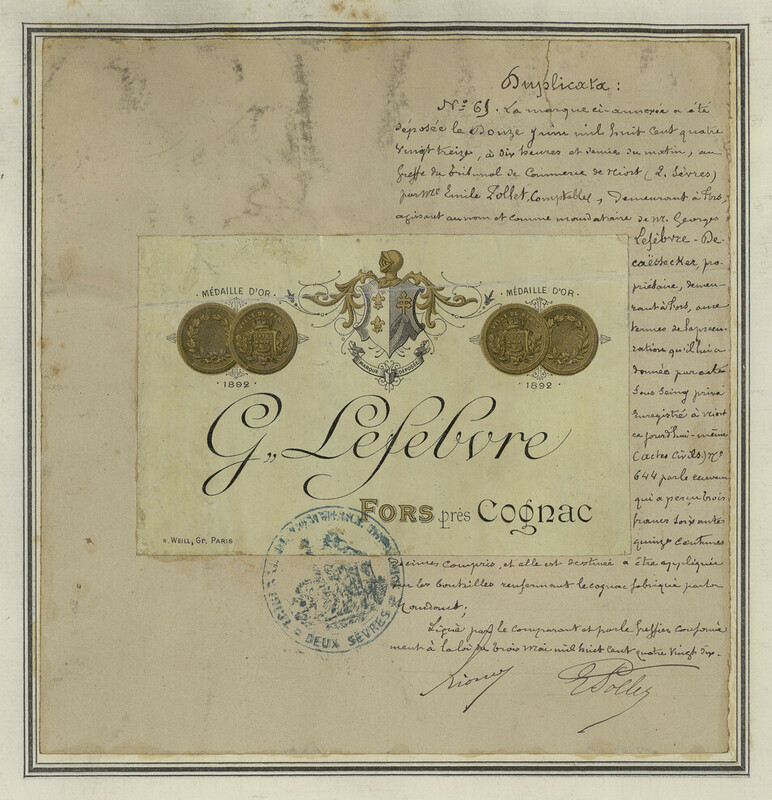 Duplicata :
No 61. La marque ci-annexée a été
déposée le Douze Juin mil huit cent quatre
vingt treize, à dix heures et demie du matin, au
Greffe du Tribunal de Commerce de Niort (2. Sèvres)
par Mr Emile Pollet, Comptable, demeurant à Fors,
agissant au nom et comme mandataire de Mr. Georges
Lefèbvre-De
caëssecker, pro-
priétaire, demeu-
rant à Fors, aux
termes de la procu-
ration qu'il lui a
donnée par acte
sous seing privé
enregistré à Niort
ce jourd'hui-même
(actes civils) No
644 par le receveur
qui a perçu trois
francs soixante
quinze centimes
décimes compris, et elle est destinée à être appliquée
sur les bouteilles renfermant le cognac fabriqué par son
Mandant;
Signé par le comparant et par le greffier conformé
ment à la loi du trois Mai mil huit cent quatre vingt dix.
EPollet
MÉDAILLE D'OR
1892
MARQUE DÉPOSÉE
MÉDAILLE D'OR
1892
G. Lefebvre
FORS près Cognac
R. WEILL, Gr. PARIS
DEUX SÈVRES